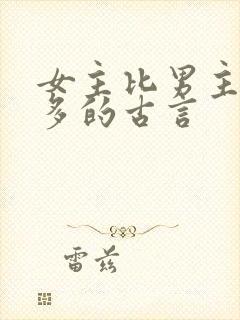 女主比男主
多的古言
雷兹